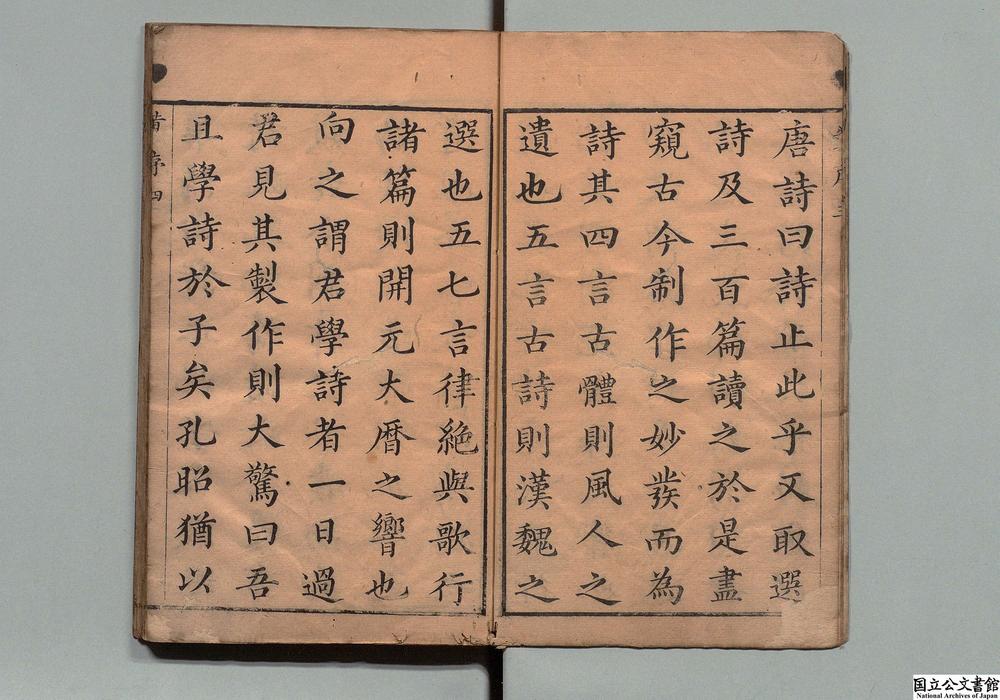 唐詩曰詩止此乎又取選
詩及三百篇讀之於是盡
窺古今制作之妙發而為
詩其四言古體則風人之
遺也五言古詩則漢魏之
選也五七言律絕與歌行
諸篇則開元大曆之響也
向之謂君學詩者一日過
君見其製作則大驚曰吾
且學詩於子矣孔昭猶以
序四
国立公文書館
National Archives of Japan